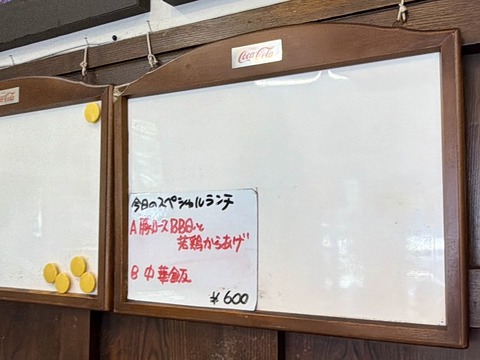 Coca-Cola
Coca-Cola
今日のスペシャルランチ
A 豚ロースBBQと
若鶏からあげ
B 中華飯
¥600